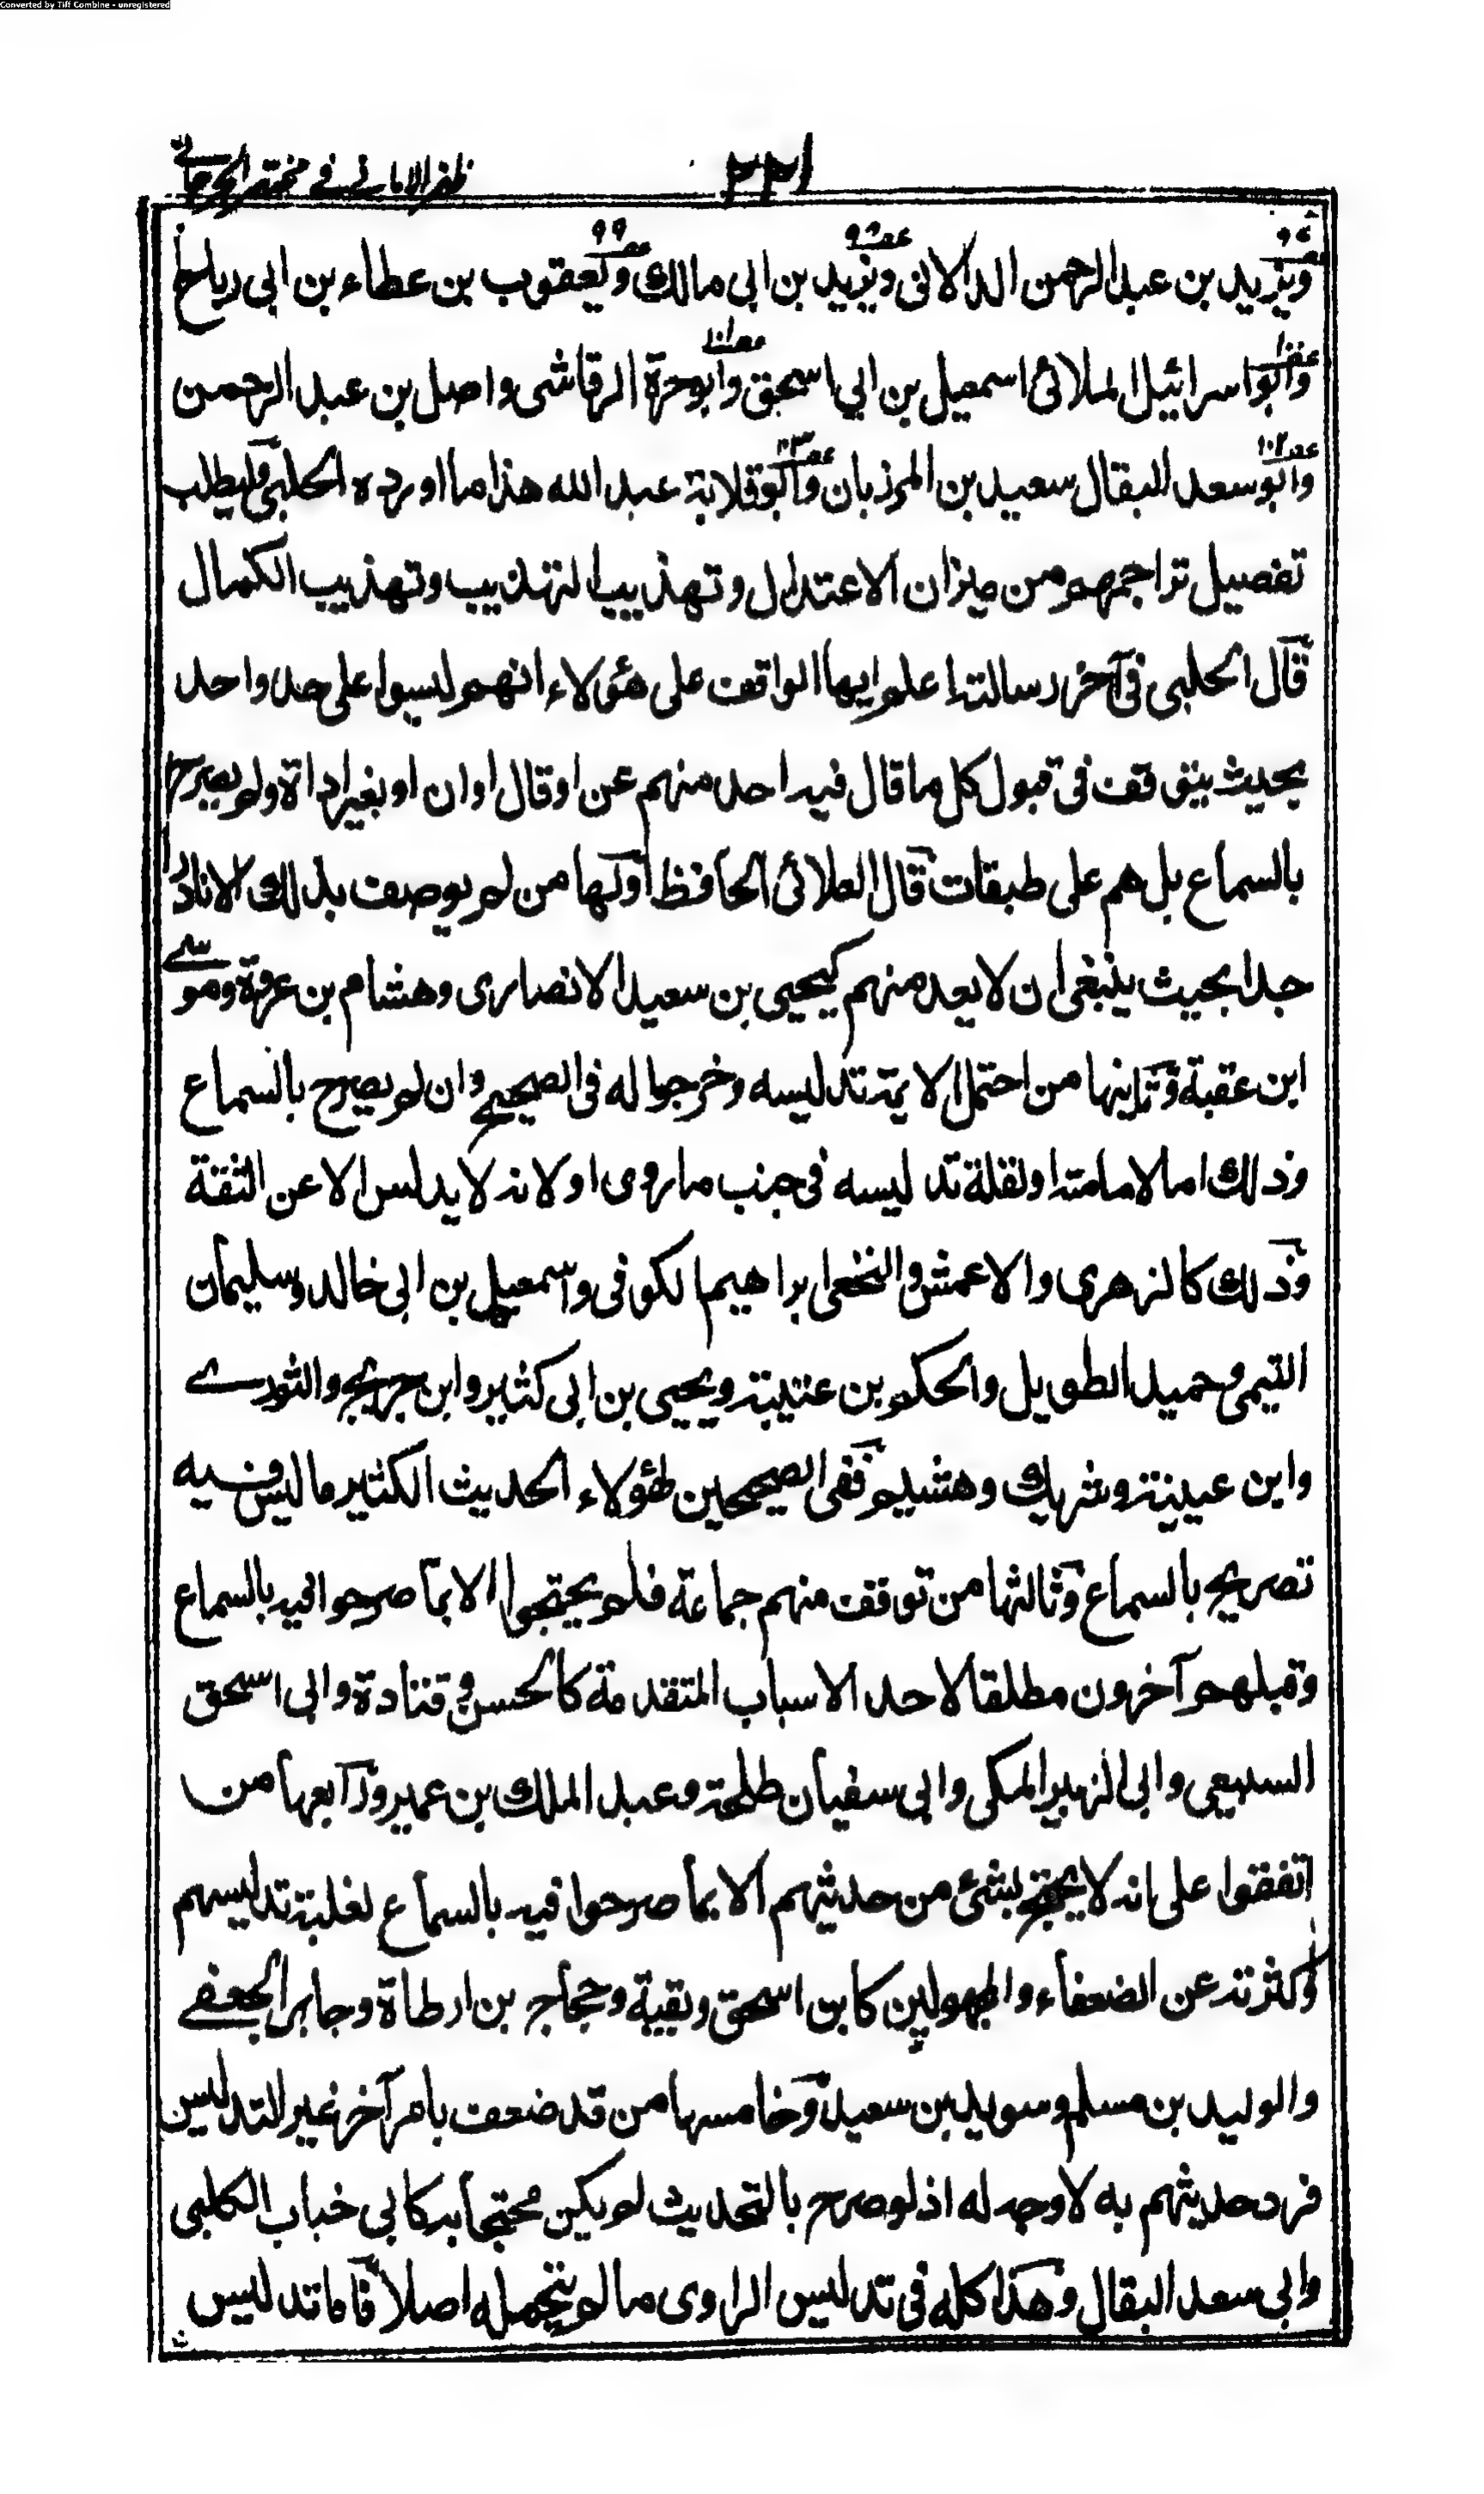 Converted by Tiff Combine - unregistered
ظفر الامانی فی مختصر الجرجانی
۲۲۱
ويزيد بن عبد الرحمن الدالانى ويزيد بن ابى مالك ويعقوب بن عطاء بن ابى رباح
وابو اسرائيل الملائى اسمعيل بن ابي اسحق وابو حرة الرقاشى واصل بن عبد الرحمن
وابو سعد البقال سعيد بن المرزبان وابو قلابة عبد الله هذا ما اورده الحلبى وليطلب
تفصيل تراجمهم من ميزان الاعتدال وتهذيب التهذيب وتهذيب الكمال
قال الحلبى فى آخر رسالته اعلم ايها الواقف على هؤلاء انهم ليسوا على حد واحد
بحيث يتوقف فى قبول كل ما قال فيه احد منهم عن او قال او ان او بغير اداة ولم يصرح
بالسماع بل هم على طبقات قال العلائى الحافظ اولها من لم يوصف بذلك الا نادرا
جدا بحيث ينبغى ان لا يعد منهم كيحيى بن سعيد الانصارى وهشام بن عروة وموسے
ابن عقبة وثانيها من احتمل الايمة تدليسه وخرجوا له فى الصحيح وان لم يصرح بالسماع
وذلك اما لامامته او لقلة تدليسه فى جنب ما روى او لانه لا يدلس الا عن الثقة
وذلك كالزهرى والاعمش والنخعى ابراهيم الكوفى واسمعيل بن ابى خالد وسليمان
التيمى وحميد الطويل والحكم بن عتيبة ويحيى بن ابى كثير وابن جريج والثورے
وابن عيينة وشريك وهشيم ففى الصحيحين لهؤلاء الحديث الكثير ما ليس فيه
تصريح بالسماع وثالثها من توقف منهم جماعة فلم يحتجوا الا بما صرحوا فيه بالسماع
وقبلهم آخرون مطلقا لاحد الاسباب المتقدمة كالحسن وقتادة وابى اسحق
السبيعى وابى الزبير المكى وابى سفيان طلحة وعبد الملك بن عمير ورابعها من
اتفقوا على انه لا يحتج بشئ من حديثهم الا بما صرحوا فيه بالسماع لغلبة تدليسهم
وكثرته عن الضعفاء والمجهولين كابن اسحق وبقية وحجاج بن ارطاة وجابر الجعفے
والوليد بن مسلم وسويد بن سعيد وخامسها من قد ضعف بامر آخر غير التدليس
فرد حديثهم به لا وجه له اذ لو صرح بالتحديث لم يكن محتجا به كابي خباب الكلبى
وابى سعد البقال وهذا كله فى تدليس الراوى ما لم يتحمله اصلا فاما تدليس